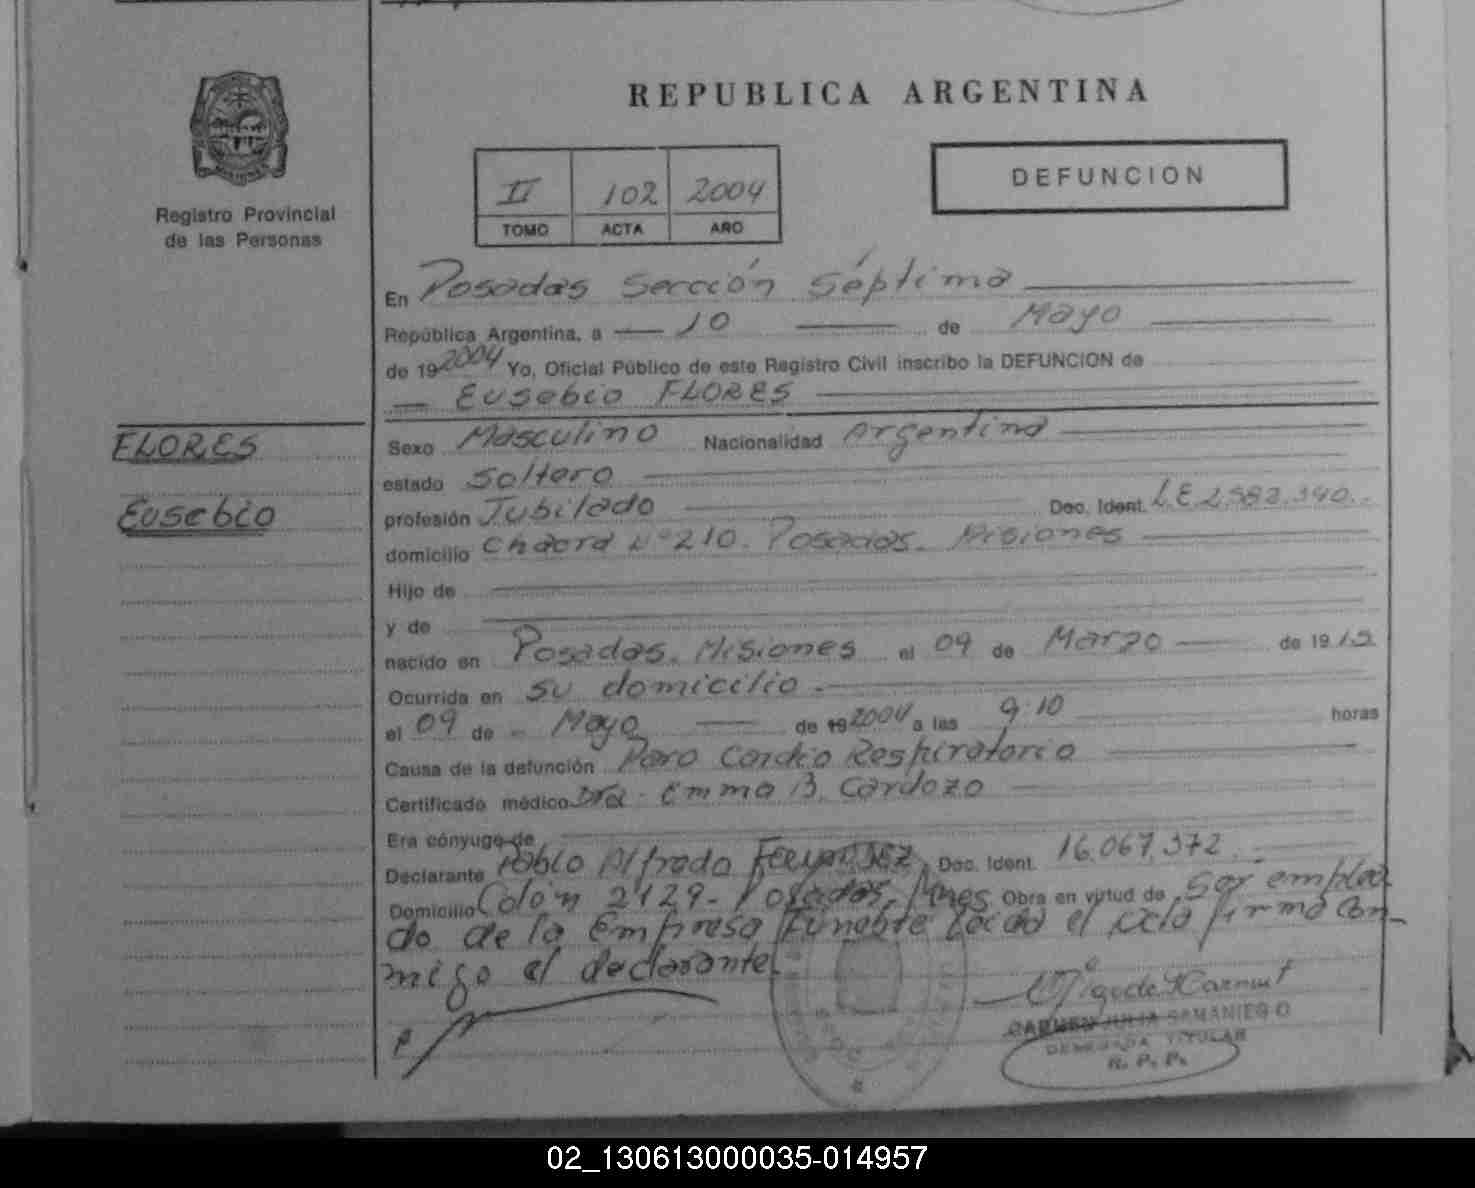 REPUBLICA ARGENTINA
Registro Provincial
de las Personas
II 102 2004
TOMO ACTA AÑO
DEFUNCION
En Posadas Sección Séptima
República Argentina, a 10 de Mayo
de 19 2004 Yo, Oficial Público de este Registro Civil inscribo la DEFUNCION de
Eusebio FLORES
FLORES
Eusebio
Sexo Masculino Nacionalidad Argentina
estado Soltero
profesión Jubilado Doc. Ident. L.E 2.582.340.
domicilio Chacra Nº 210. Posadas. Misiones
Hijo de
y de
nacido en Posadas. Misiones el 09 de Marzo de 19
Ocurrida en su domicilio.
el 09 de Mayo de 19 2004 a las 9:10 horas
Causa de la defunción Paro Cardio Respiratorio
Certificado médico Dra. Emma B. Cardozo
Era cónyuge de
Declarante Pablo Alfredo Doc. Ident. 16.067.372
Domicilio Colón 2129. Posadas, Mnes Obra en virtud de ser emplea
do de la Empresa Funebre Leido el acta firma con-
migo el declarante.
CARMEN JULIA SAMANIEGO
DELEGADA TITULAR
R. P. P.
02_130613000035-014957